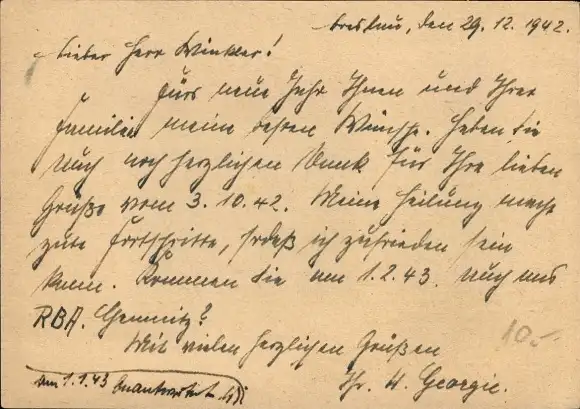 Breslau, den 29.12.1942.
Lieber Herr Winkler!
Fürs neue Jahr Ihnen und Ihrer
Familie meine besten Wünsche. Haben Sie
auch noch herzlichen Dank für Ihre lieben
Grüße vom 3.10.42. Meine Heilung macht
gute Fortschritte, sodaß ich zufrieden sein
kann. Kommen Sie am 1.2.43. auch ans
RBA. Chemnitz?
10.-
Mit vielen herzlichen Grüßen
Ihr H. Georgie.
am 1.1.43 beantwortet